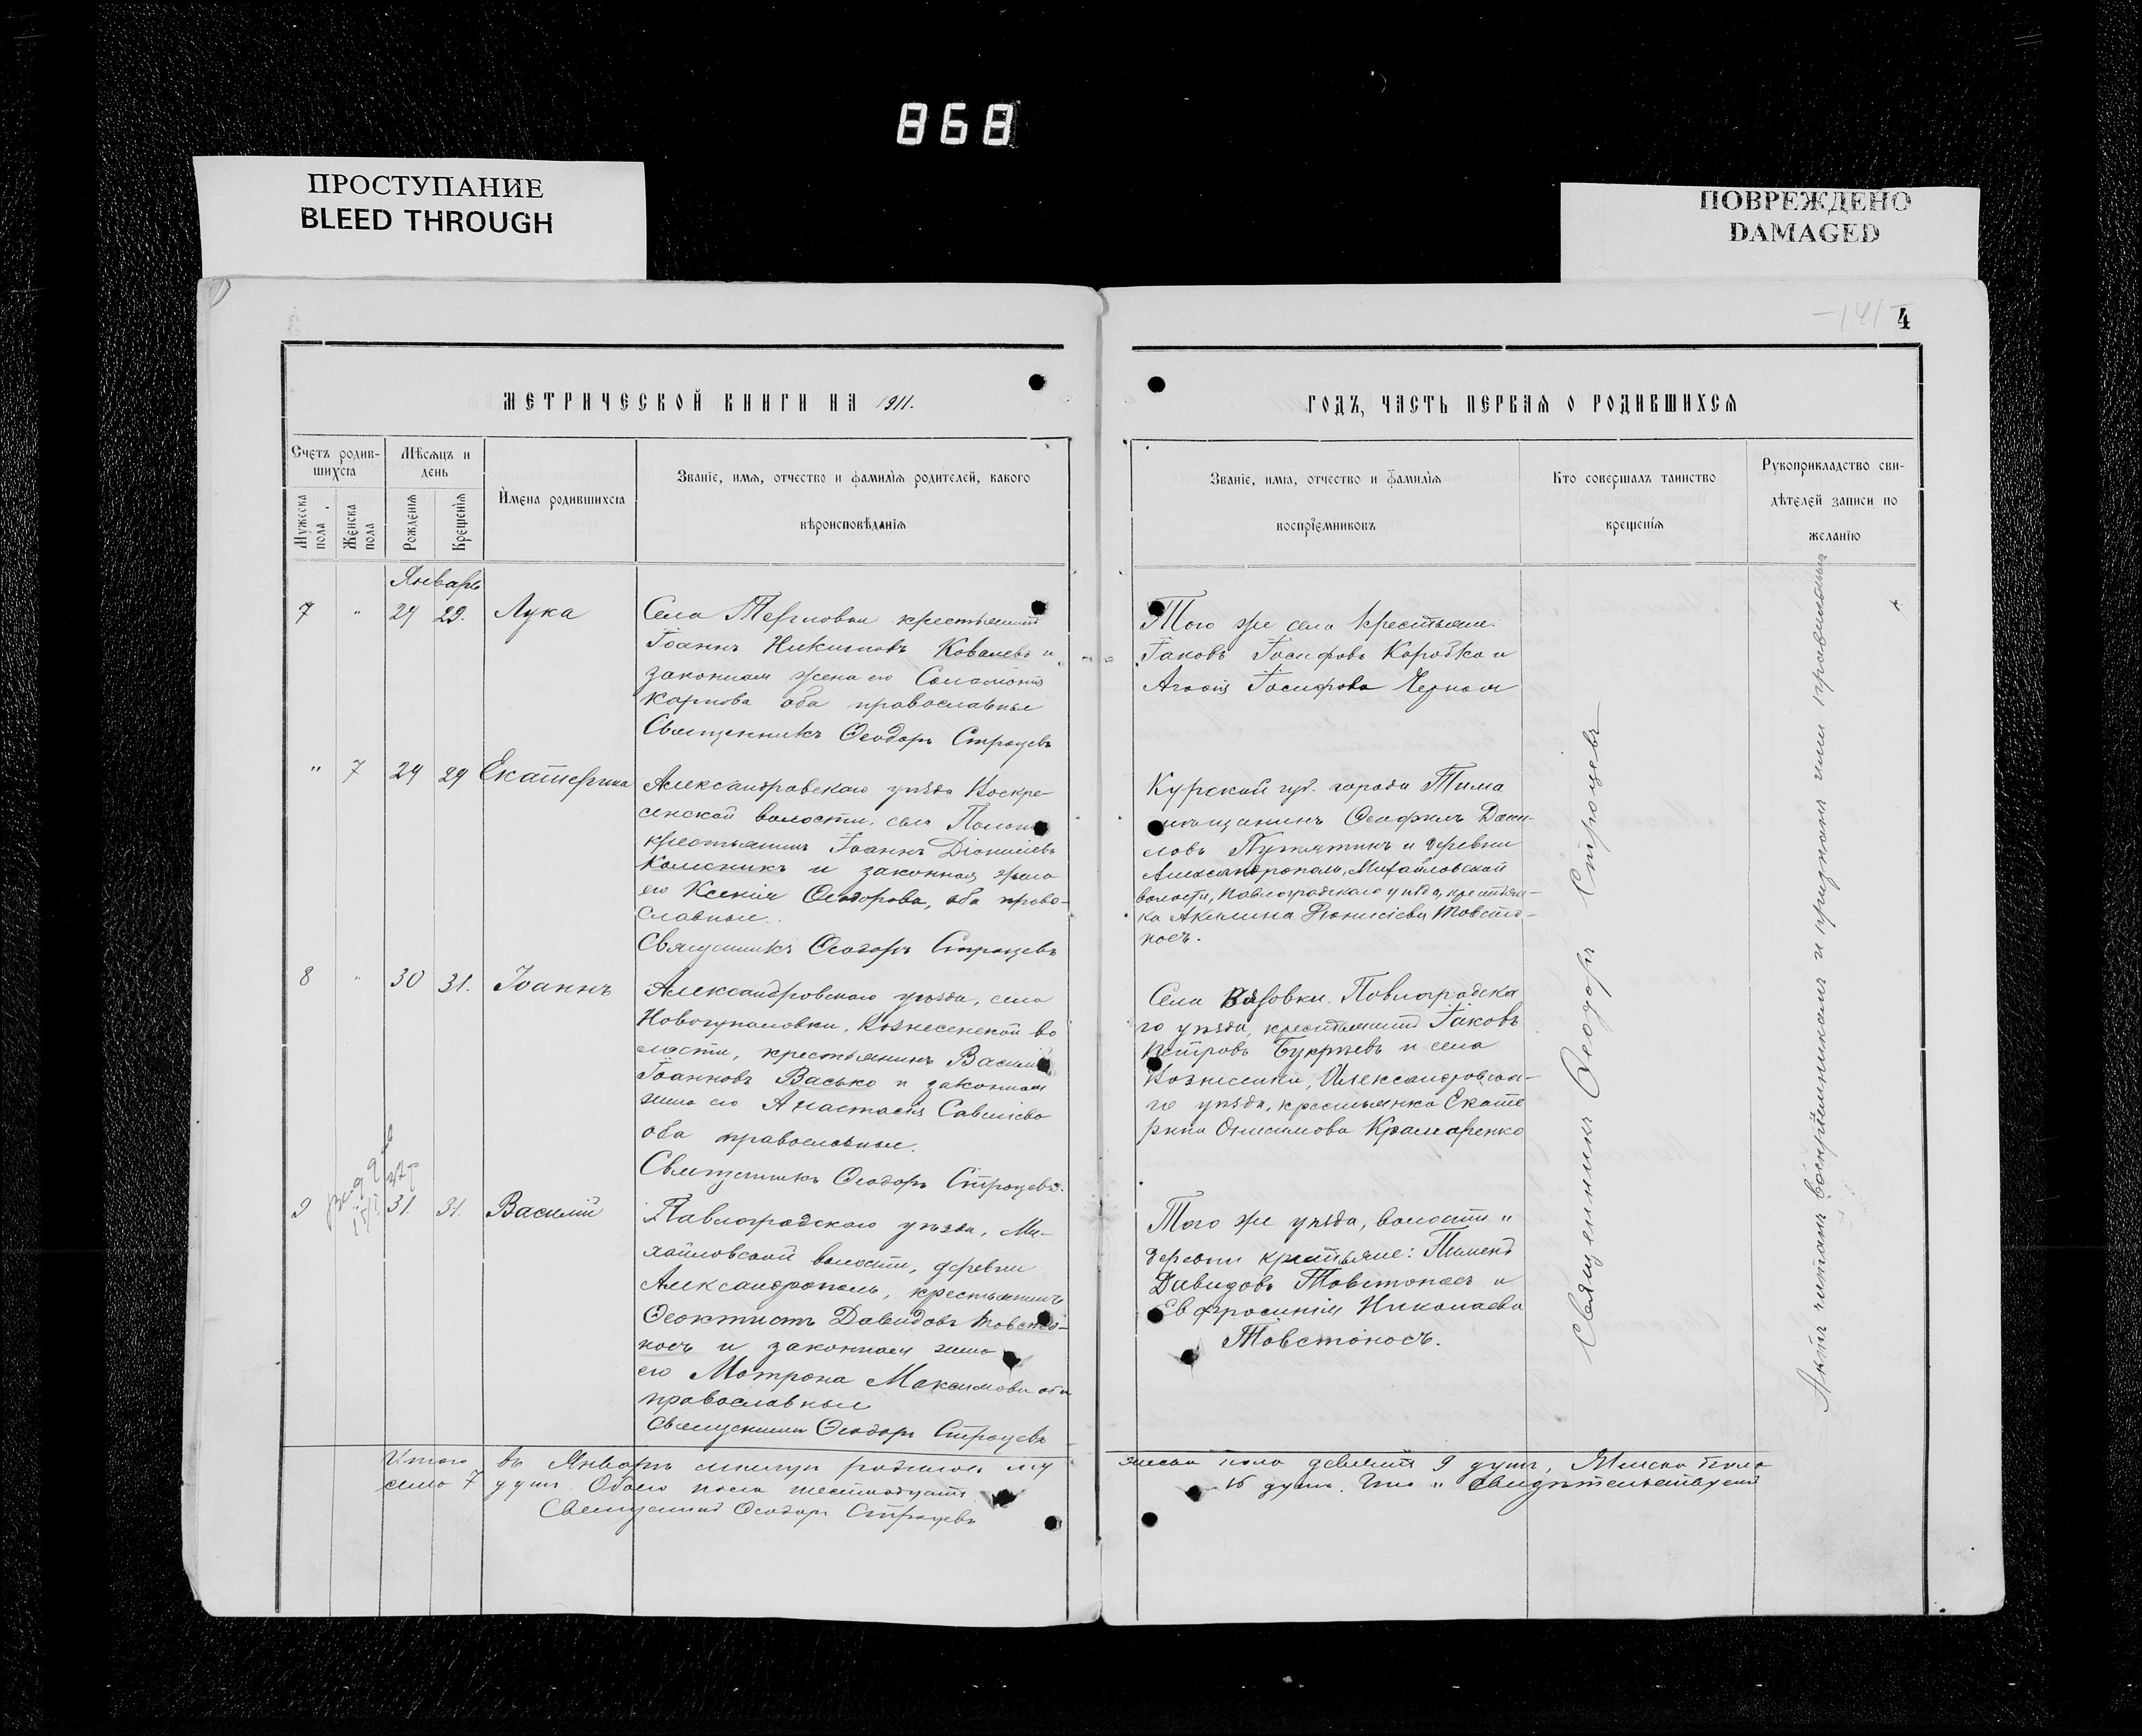 868
ПРОСТУПАНИЕ
BLEED THROUGH
ПОВРЕЖДЕНО
DAMAGED
4
МЕТРИЧЕСКОЙ КНИГИ НА 1911.
Счетъ родив-
шихся
Мѣсяцъ и
день
Мужеска
пола
Женска
пола
Рожденія
Крещенія
Имена родившихся
Званіе, имя, отчество и фамилія родителей, какого
вѣроисповѣданія
Январь
7 " 24 29. Лука
Села Терновки крестьянинъ
Іоаннъ Никитовъ Ковалевъ и
законная жена его Соломонія
Карпова оба православные
Священникъ Ѳеодоръ Строцевъ
" 7 24 29 Екатерина
Александровскаго уѣзда Воскре-
сенской волости, села
крестьянинъ Іоаннъ Діонисіевъ
Колесникъ и законная жена
его Ксенія Ѳеодорова, оба право-
славные.
Священникъ Ѳеодоръ Строцевъ
8 " 30 31. Іоаннъ
Александровскаго уѣзда, села
Новогупаловки, Вознесенской во
лости, крестьянинъ Василій
Іоанновъ Васько и законная
жена его Анастасія Савеліева
оба православные.
Священникъ Ѳеодоръ Строцевъ.
9 31. 31. Василій
Павлоградскаго уѣзда, Ми-
хайловской волости, деревни
Александрополь, крестьянинъ
Ѳеоктистъ Давидовъ Товсто-
носъ и законная жена
его Матрона Максимова оба
православные
Священникъ Ѳеодоръ Строцевъ
Итого въ Январѣ мѣсяцѣ родилось му
7 душъ Обоего пола шестнадцать
Священникъ Ѳеодоръ Строцевъ
ГОДЪ, ЧАСТЬ ПЕРВАЯ О РОДИВШИХСЯ
Званіе, имя, отчество и фамилія
воспріемниковъ
Кто совершалъ таинство
крещенія
Рукоприкладство сви-
дѣтелей записи по
желанію
Того же села крестьяне:
Іаковъ Іосифовъ Коробка и
Агаѳія Іосифова Черная
Курской губ. города Тима
мѣщанинъ Ѳеофилъ Дани-
ловъ Путятинъ и деревни
Александрополь, Михайловской
волости, Павлоградскаго уѣзда, крестьян-
ка Акилина Діонисіева Товсто-
носъ.
Села Вязовки, Павлоградска
го уѣзда, крестьянинъ Іаковъ
Петровъ Букрѣевъ и села
Вознесенки, Александровска-
го уѣзда, крестьянка Екате
рина Онисимова Крамаренко
Того же уѣзда, волости и
деревни крестьяне: Пименъ
Давидовъ Товстоносъ и
Евфросинія Николаева
Товстоносъ.
жеска пола девять 9 душъ, Женска пола
16 душъ. Что и свидѣтельствуемъ
Священникъ Ѳеодоръ Строцевъ
Актъ читанъ воспріемниками и признанъ ими правильнымъ